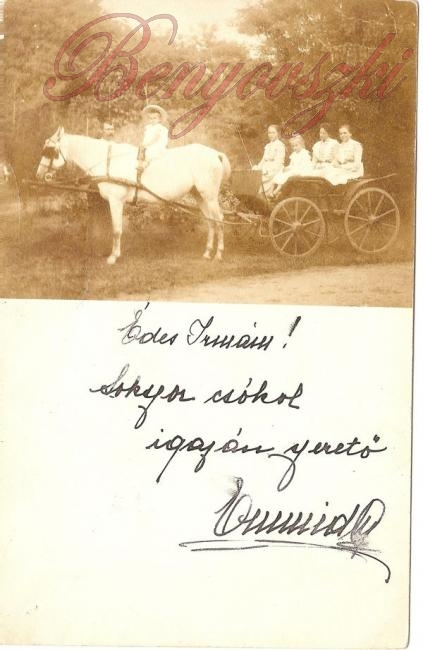 Benyovszki
Édes Irmám!
Sokszor csókol
igazán szerető